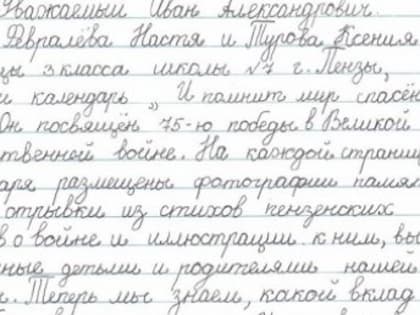 Уважаемый Иван Александрович.
Февралёва Настя и Турова Ксения
цы 3 класса школы №7 г. Пензы,
й календарь „И помнит мир спасён
Он посвящён 75-ю победы в Великой
ственной войне. На каждой страниц
аря размещены фотографии памят
отрывки из стихов пензенских
в о войне и иллюстрации к ним, вы
ные детьми и родителями нашей
. Теперь мы знаем, какой вклад